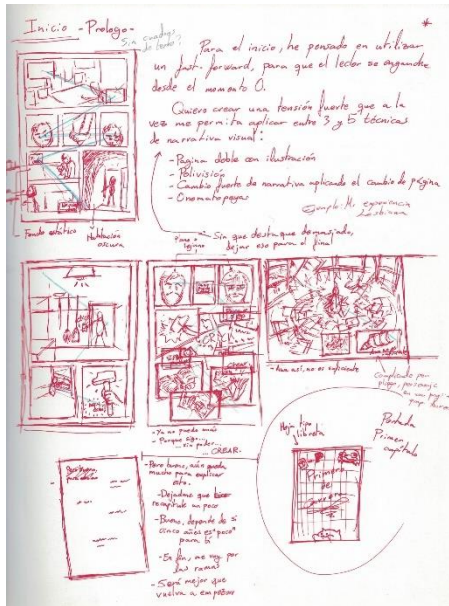 Inicio - Prologo -
*
Sin cuadros
de texto
Para el inicio, he pensado en utilizar
un fast-forward, para que el lector se enganche
desde el momento 0.
Quiero crear una tensión fuerte que a la
vez me permita aplicar entre 3 y 5 técnicas
de narrativa visual:
- Pagina doble con ilustración
- Polivisión
- Cambio fuerte de narrativa aplicando el cambio de página
- Onomatopeyas
Ejemplo: Mi experiencia
lesbiana
- Fondo estático
Habitación
oscura
Sin que destaque demasiado,
dejar eso para el final
Plano a
- Aun así, no es suficiente
- Ya no puedo más
- Porque sigo...
... sin poder...
... CREAR.
Complicado por
- Pero bueno, aún queda
mucho para explicar
esto.
- Dejadme que
recapitule un poco
- Bueno, depende de si
cinco años es "poco"
para ti
- En fin, me voy por
las ramas
- Será mejor que
vuelva a empezar
Hoja tipo
libreta
Portada
Primer
capítulo
Primero
de